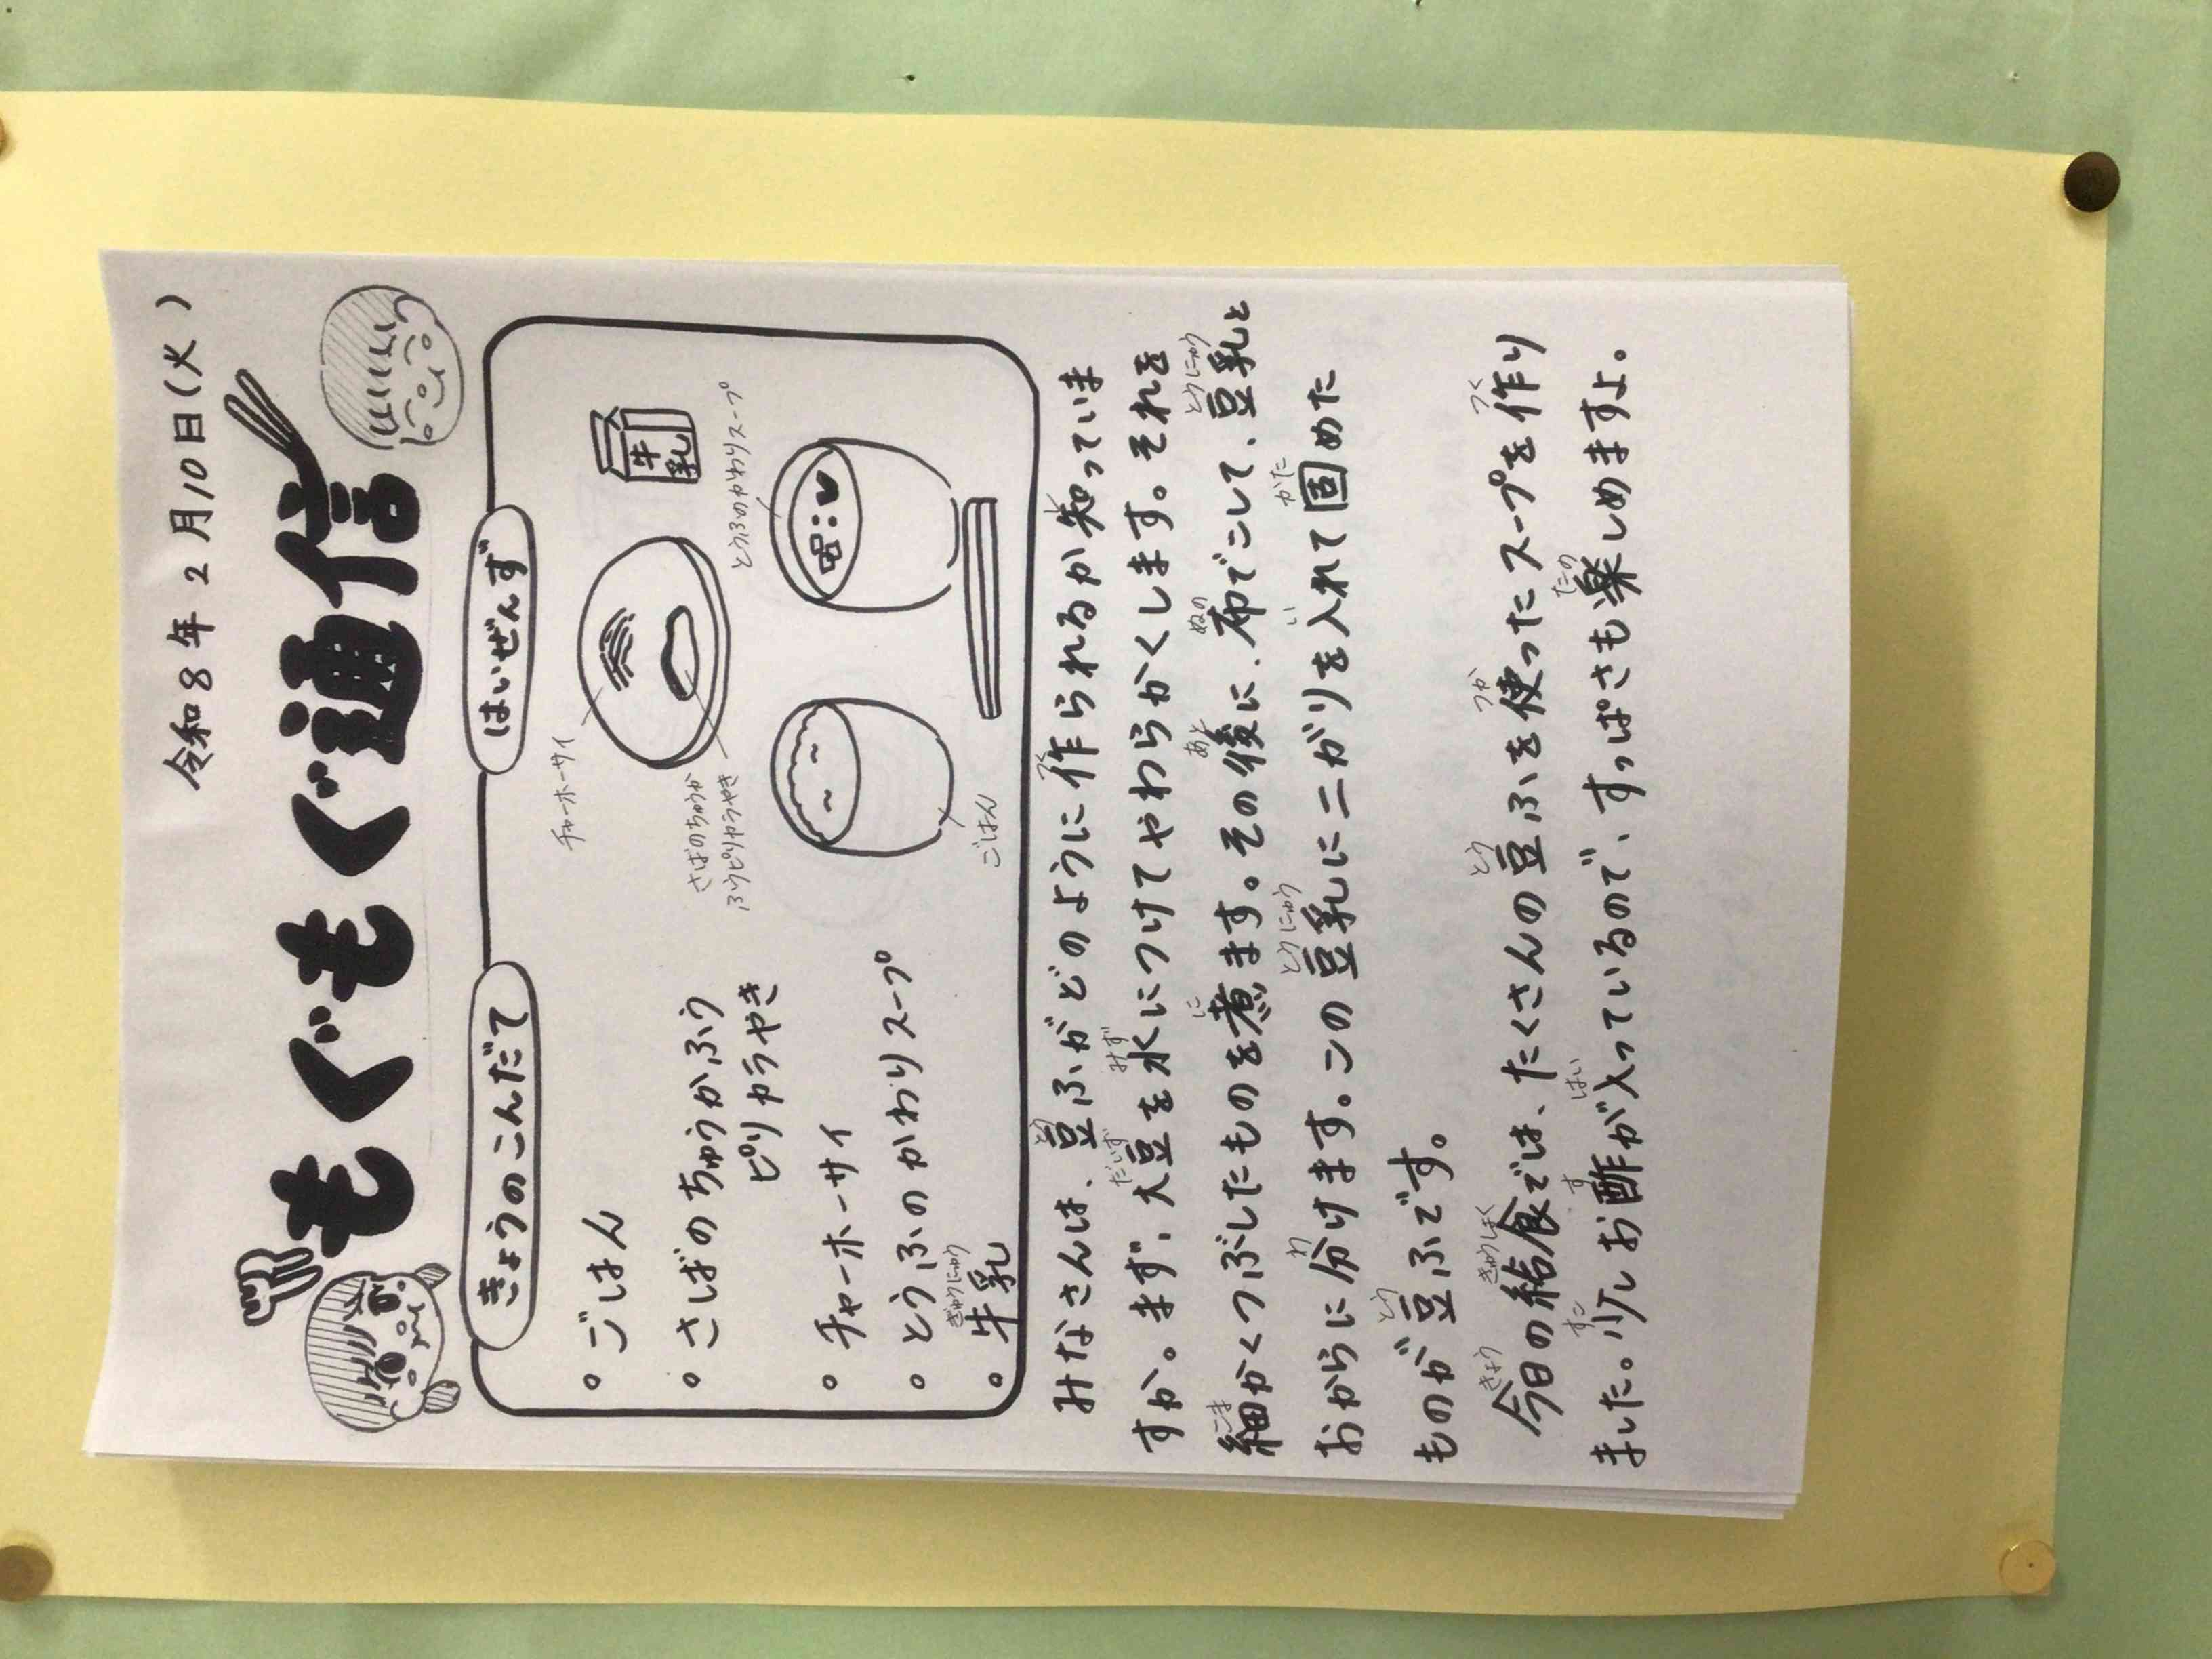 令和8年2月10日(火)
もぐもぐ通信
きょうのこんだて
。ごはん
。さばのちゅうかふう
ピリカラやき
。チャーホーサイ
。とうふのかわりスープ
ぎゅうにゅう
。牛乳
はいぜんず
チャーホーサイ
牛乳
さばのちゅうか
ふうピリカラやき
とうふのかわりスープ
ごはん
とう つく
みなさんは、豆ふがどのように作られるか知っていま
だいず みず
すか。まず、大豆を水につけてやわらかくします。それを
こま に あと ぬの とうにゅう
細かくつぶしたものを煮ます。その後に、布でこして、豆乳と
わ とうにゅう い かた
おからに分けます。この豆乳にニガリを入れて固めた
とう
ものが豆ふです。
きょう きゅうしょく とう つか つく
今日の給食では、たくさんの豆ふを使ったスープを作り
すこ す はい たの
ました。少しお酢が入っているので、すっぱさも楽しめますよ。